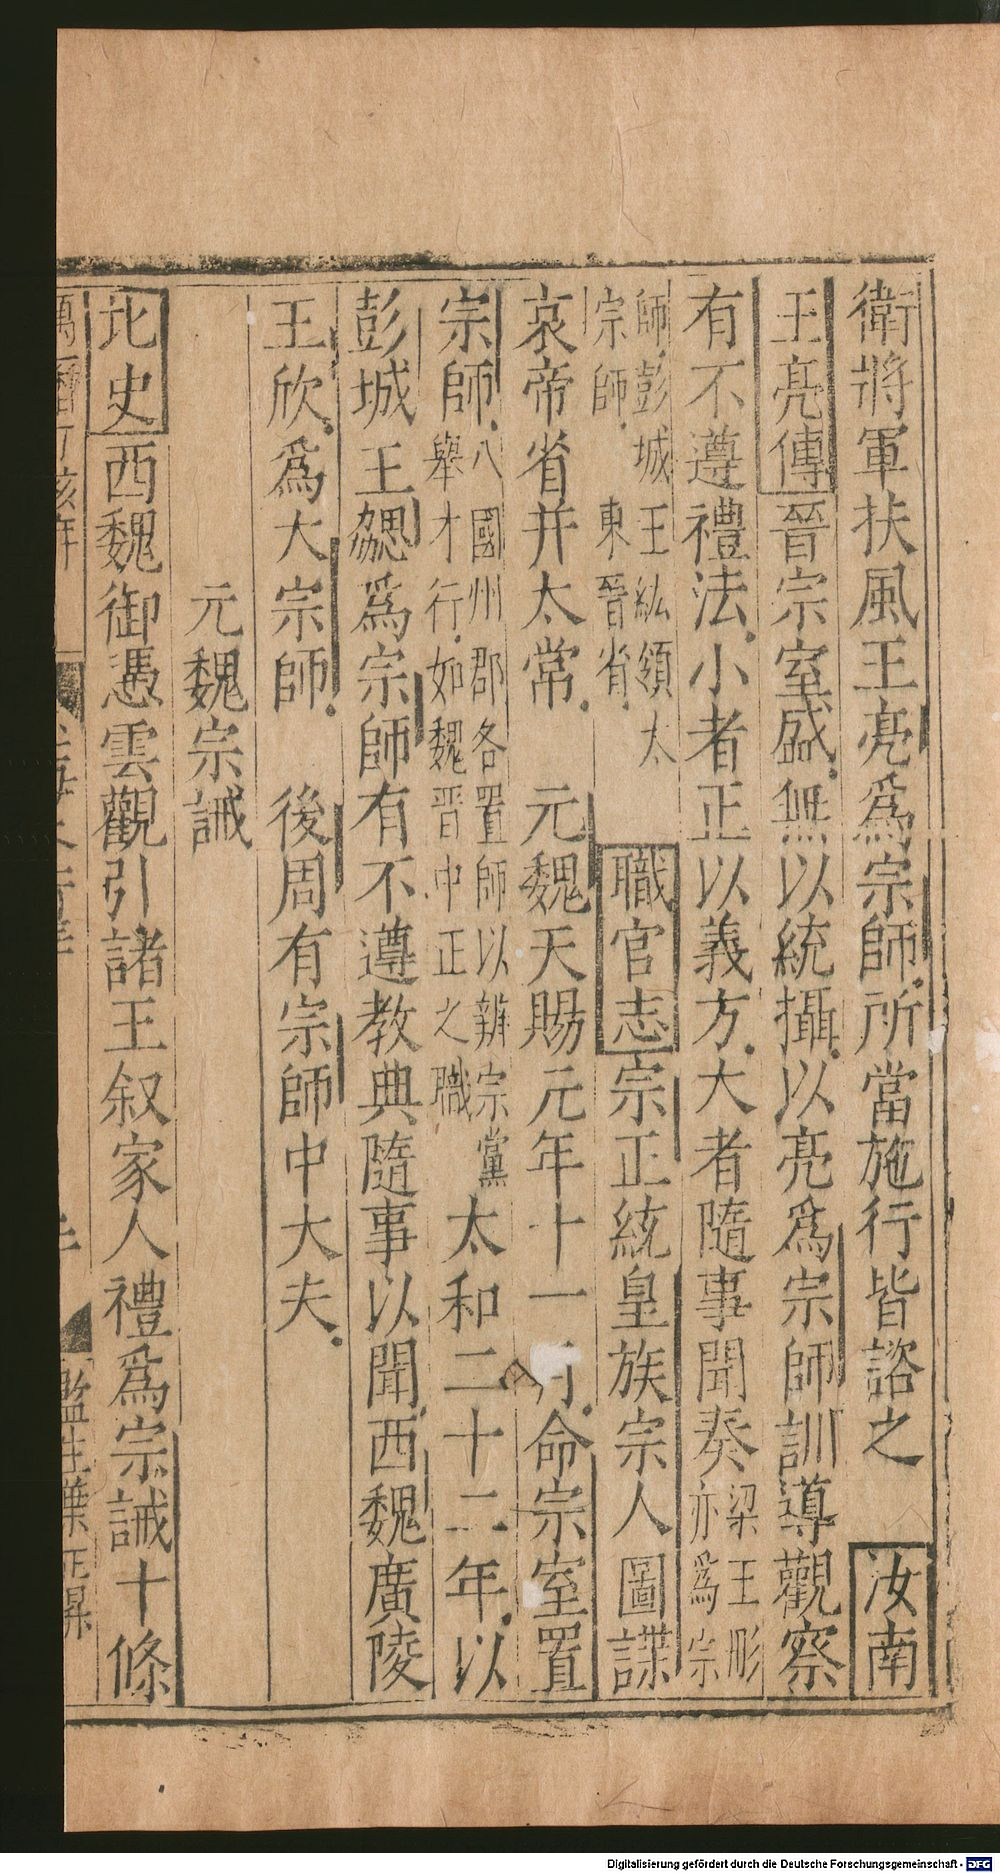 衛將軍扶風王亮爲宗師所當施行皆諮之　汝南
王亮傳晉宗室盛無以統攝以亮爲宗師訓導觀察
有不遵禮法小者正以義方大者隨事聞奏梁王肜亦爲宗
師彭城王紘領太宗師東晉省　職官志宗正統皇族宗人圖諜
哀帝省并太常　元魏天賜元年十一月命宗室置
宗師八國州郡各置師以辨宗黨舉才行如魏晉中正之職太和二十二年以
彭城王勰爲宗師有不遵教典隨事以聞西魏廣陵
王欣爲大宗師　後周有宗師中大夫
元魏宗誡
北史西魏御憑雲觀引諸王叙家人禮爲宗誡十條
萬曆丁亥年　監生葉正昇
Digitalisierung gefördert durch die Deutsche Forschungsgemeinschaft - DFG